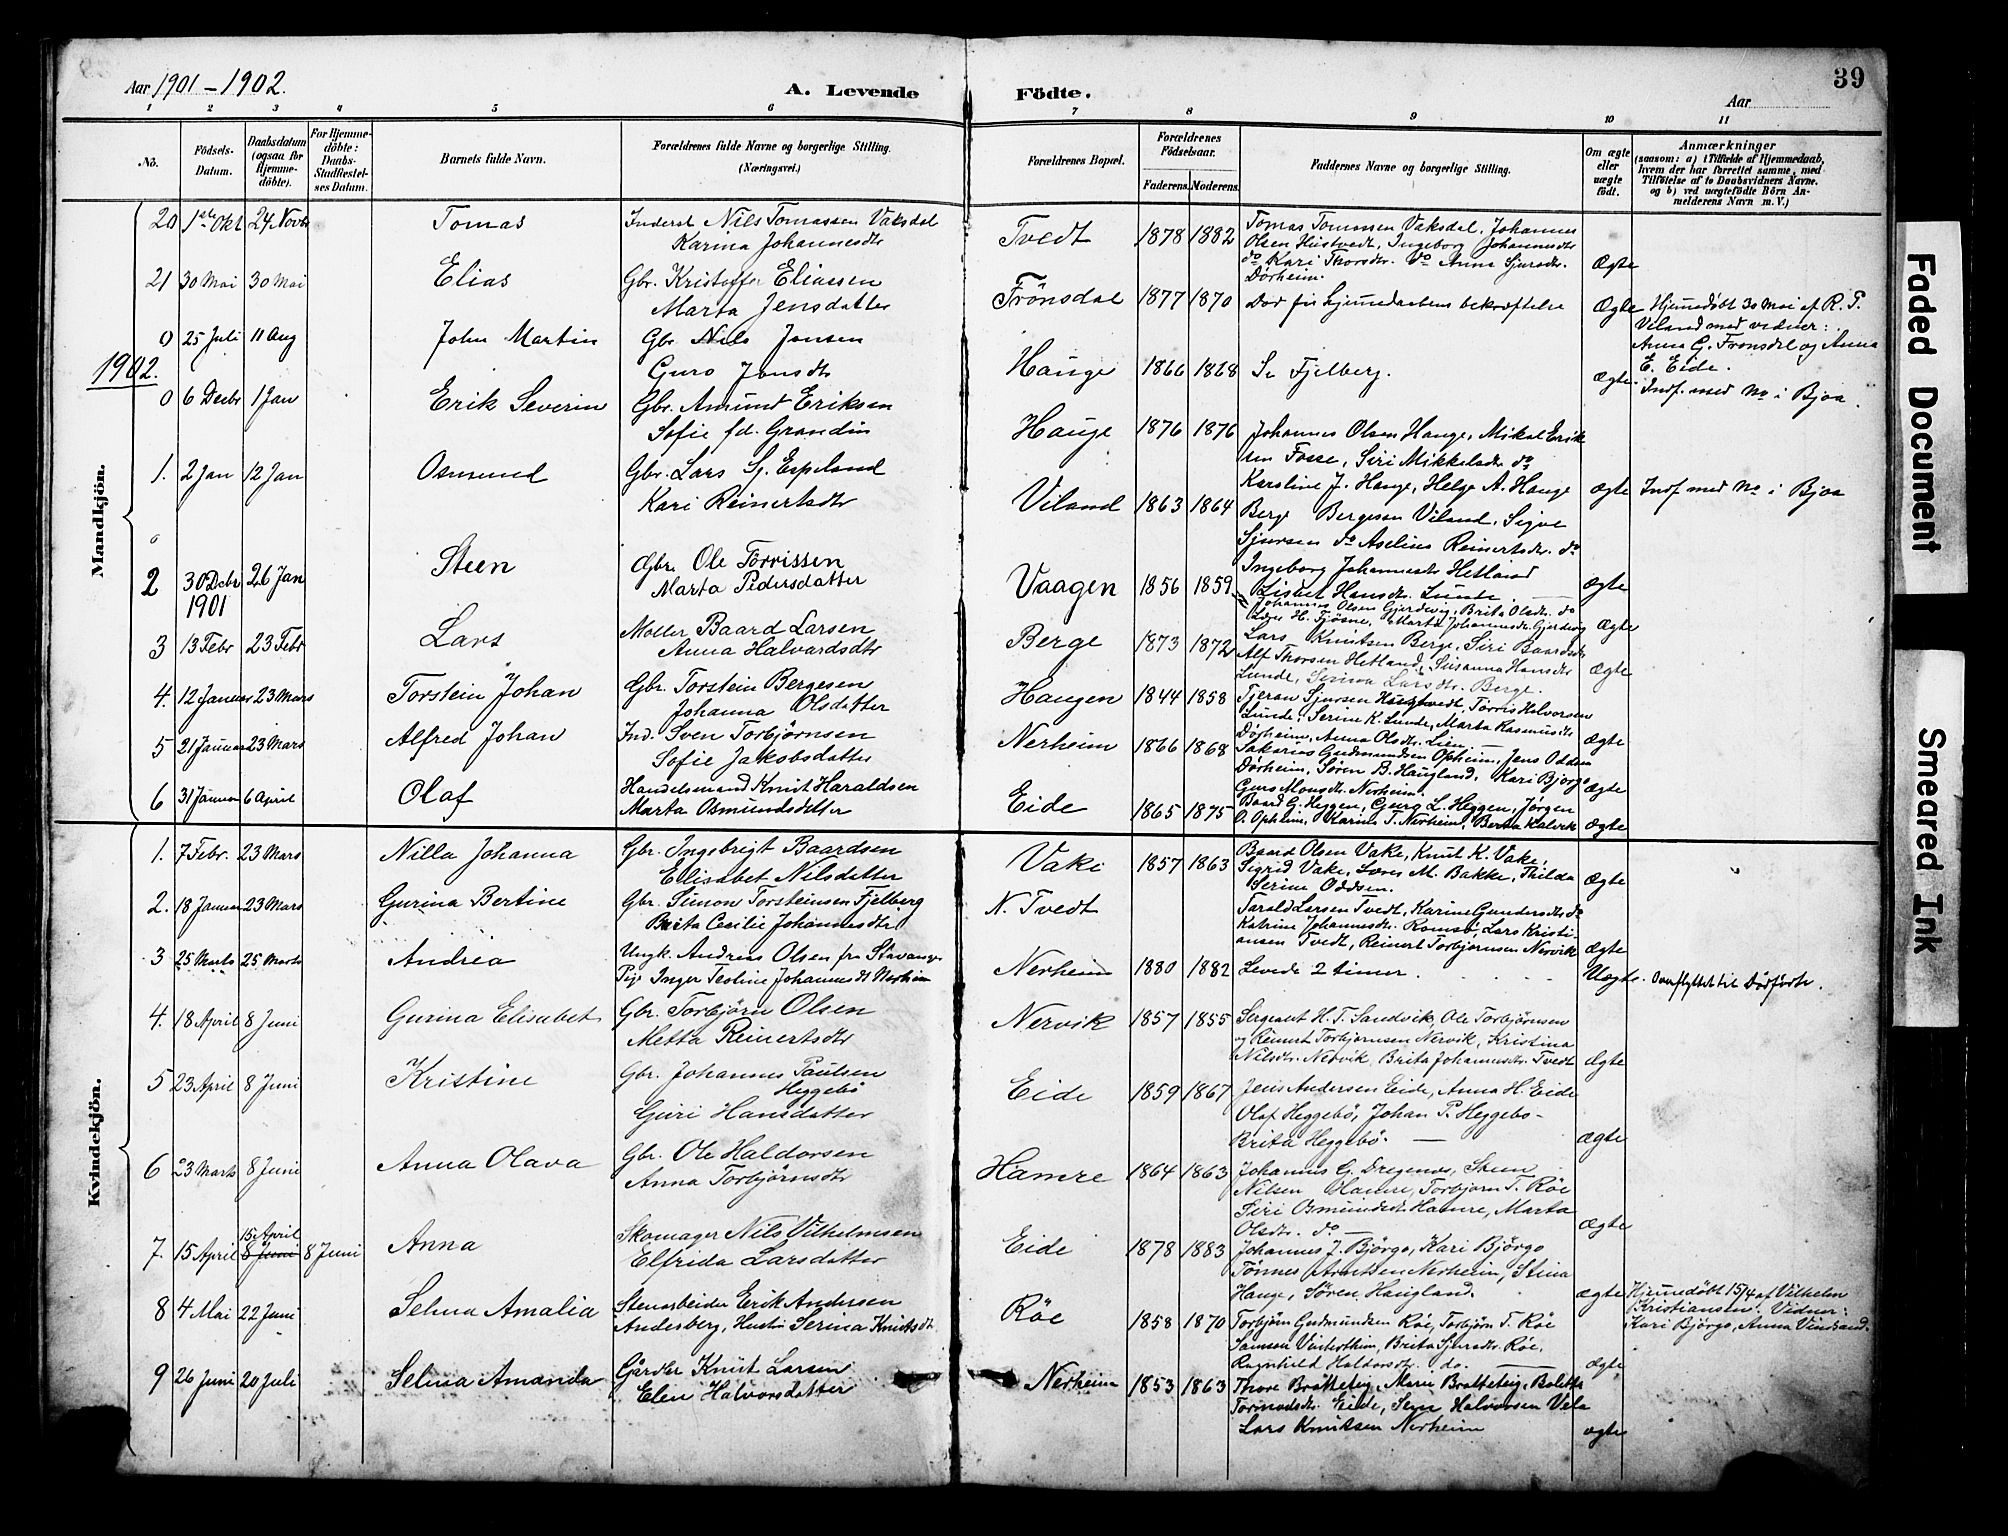 Aar 1901-1902.
A. Levende Födte.
39
Aar
1 2 3 4 5 6 7 8 9 10 11
No.
Födsels-Datum.
Daabsdatum (ogsaa for Hjemme-döbte).
For Hjemme-döbte: Daabs-Stadfæstel-ses Datum.
Barnets fulde Navn.
Forældrenes fulde Navne og borgerlige Stilling. (Næringsvei.)
Forældrenes Bopæl.
Forældrenes Födselsaar.
Faderens. Moderens.
Faddernes Navne og borgerlige Stilling.
Om ægte eller uægte födt.
Anmærkninger
(saasom: a) i Tilfælde af Hjemmedaab, hvem der har forrettet samme, med Tilföielse af to Daabsvidners Navne. og b) ved uægtefödte Börn An-melderens Navn m. V.)
Mandkjön.
20 1ste Okt 24 Novbr Tomas Inderst Nils Tomassen Vaksdal
Karina Johannesdtr Tvedt 1878 1882 Tomas Tommsen Vaksdal, Johannes
Olsen Hustvedt, Ingeborg Johannesdtr
do Kari Thorsdtr. do Anna Sjursdtr.
Dörheim. Ægte
21 30 Mai 30 Mai Elias Gbr. Kristoffer Eliassen
Marta Jensdatter Frönsdal 1877 1870 Død før hjemmedaabens bekræftelse Ægte Hjemmedöbt 30 Mai af R. T.
Viland med vidner:
Anna G. Frønsdal og Anna
E. Eide.
0 25 Juli 11 Aug John Martin Gbr. Nils Jonsen
Guro Jonsdtr Hauge 1866 1868 Se Fjelberg. Ægte. Indf. med No i Bjoa.
1902.
0 6 Decbr 1 Jan Erik Severin Gbr. Amund Eriksen
Sofie fd. Grandin Hauge 1876 1876 Johannes Olsen Hauge, Mikal Erik
sen Fosse, Siri Mikkelsdtr do
Karoline J. Hauge, Helge A. Hauge ægte Indf med No i Bjoa
1. 2 Jan 12 Jan Osmund Gbr. Lars Sj. Espeland
Kari Reinertsdtr Viland 1863 1864 Berge Bergesen Viland, Sigve
Sjursen do Aselius Reinertsdtr. do
Ingeborg Johannesdtr Hetland ægte
2 30 Decbr 1901 26 Jan Steen Gbr. Ole Torrissen
Marta Pedersdatter Vaagen 1856 1859 Lisbet Hansdtr. Lunde
Johannes Olsen Gjerdevig, Brita Olsdtr. do
H. Fjösne, Marta Johannesdtr. Gjerdevig Ægte
3 13 Febr 23 Febr Lars Møller Baard Larsen
Anna Halvardsdtr Berge 1873 1872 Lars Knutsen Berge, Siri Baardsdtr
Alf Thorsen Hetland, Susanna Hansdtr
Lunde, Serina Larsdtr. Berge. Ægte
4. 12 Januar 23 Mars Torstein Johan Gbr. Torstein Bergesen
Johanna Olsdatter Haugen 1844 1858 Tjeran Sjursen Hustvedt, Torris Halvorsen
Lunde, Serine K. Lunde, Marta Rasmusdtr
Dörheim, Anna Olsdtr. Lien Ægte
5 21 Januar 23 Mars Alfred Johan Ind. Sven Torbjörnsen
Sofie Jakobsdatter Nerheim 1866 1868 Sakarias Gudmundsen Opheim, Jens Oddsen
Dörheim, Søren B. Haugland, Kari Bjorgo
Guro Monsdtr. Nerheim. Ægte
6 31 Januar 6 April Olaf Handelsmand Knut Haraldsen
Marta Osmundsdatter Eide 1865 1875 Baard G. Heggen, Gjurg L. Heggen, Jörgen
O. Opheim, Karine T. Nerheim, Berta Kalvik Ægte
Kvindekjön.
1. 7 Febr. 23 Mars Nilla Johanna Gbr. Ingebrigt Baardsen
Elisabet Nilsdatter Vake 1857 1863 Baard Olsen Vake, Knut K. Vake,
Sigrid Vake, Lovis M. Bakke, Thilda
Serine Oddsen. Ægte
2. 18 Januar 23 Mars Gurina Bertine Gbr. Simon Torsteinsen Fjelberg
Brita Cecilie Johannesdtr N. Tvedt Tarald Larsen Tvedt, Karine Gundersdtr do
Katrine Johannesdtr. Romsø, Lars Kristi-
ansen Tvedt, Reinert Torbjørnsen Nervik Ægte
3 25 Marts 25 Marts Andrea Ungk. Andreas Olsen fra Stavanger
Pige Inger Teoline Johannesdt Nerheim Nerheim 1880 1882 Levede 2 timer. Uægte. Overflyttet til Dødfødte.
4. 18 April 8 Juni Gurina Elisabet Gbr. Torbjörn Olsen
Metta Reinertsdtr Nervik 1857 1855 Sergeant H. T. Sandvik, Ole Torbjørnsen
og Reinert Torbjørnsen Nervik, Kristina
Nilsdtr. Nervik, Brita Johannesdtr. Tvedt Ægte
5 23 April 8 Juni Kristine Gbr. Johannes Paulsen
Heggebö
Guri Hansdatter Eide 1859 1867 Jens Andersen Eide, Anna H. Eide
Olaf Heggebö, Johan P. Heggebo-
Brita Heggebö. Ægte
6 23 Marts 8 Juni Anna Olava Gbr. Ole Haldorsen
Anna Torbjörnsdtr Hamre 1864 1863 Johannes G. Dregenes, Steen
Nilsen Hamre, Torbjørn T. Röe
Siri Osmundsdt Hamre, Marta
Olsdtr. do Ægte
7. 15 April 15 April 8 Juni 8 Juni Anna Skomager Nils Vilhelmsen
Elfrida Larsdatter Eide 1878 1883 Johannes J. Björgo, Kari Björgo
Tönnes Arntsen Nerheim, Stina
Hauge, Sören Haugland. ægte Hjemmedöbt 15/4 af Vilhelm
Kristiansen. Vidner:
Kari Björgo, Anna Vindsand.
8 4 Mai 22 Juni Selma Amalia Stenarbeider Erik Andersen
Anderberg, Hustr. Serina Knutsdtr Röe 1858 1870 Torbjörn Gudmundsen Röe, Torbjörn T. Röe
Samson Vinterthun, Brita Sjursdtr. Röe,
Ragnhild Haldorsdtr. do. ægte
9 26 Juni 20 Juli Selma Amanda Gårdbr Knut Larsen
Elen Halvorsdatter Nerheim 1853 1863 Thore Bratteteig, Marie Bratteteig, Bolette
Tormodsdtr. Eide, Sem Halvorsen Vela
Lars Knutsen Nerheim ægte
Faded Document
Smeared Ink